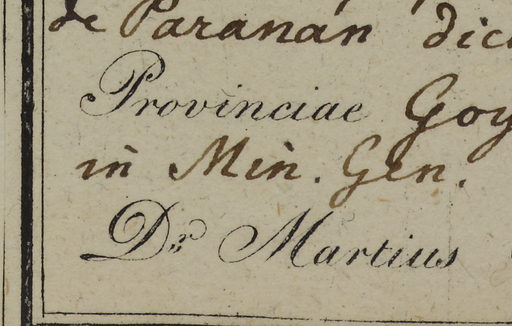 de Paranán dic
Provinciae Goy
in Min. Gen.
Dr. Martius